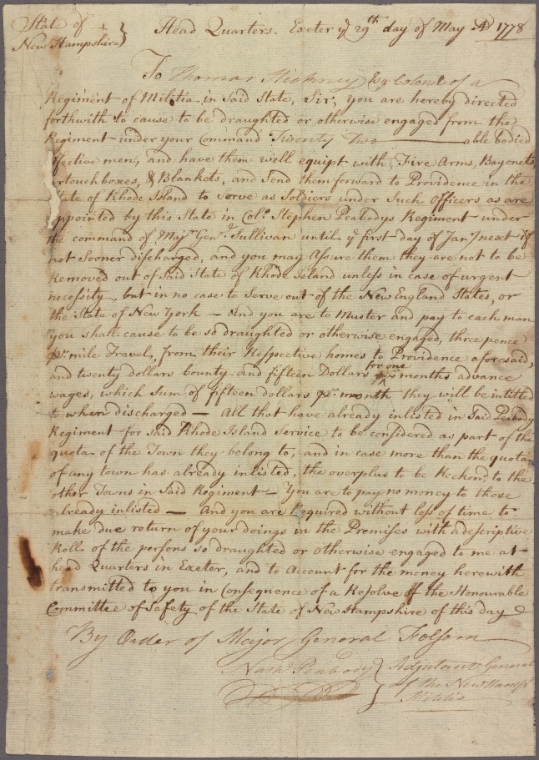 State of
New Hampshire } Head Quarters. Exeter ye 29th day of May AD 1778
To Thomas Stickney Esqr Colonel of a
Regiment of Militia in Said State, Sir, you are hereby directed
forthwith to cause to be draughted or otherwise engaged from the
Regiment under your Command Twenty Two able bodied
effective men, and have them well equipt with Fire Arms, Bayonets
Cartouchboxes, & Blankets, and Send them forward to Providence in the
State of Rhode Island to Serve as Soldiers under Such officers as are
appointed by this State in Colo. Stephen Peabodys Regiment under
the command of Majr Genl Sullivan until ye first day of Jany next if
not Sooner discharged, and you may assure them they are not to be
Removed out of Said State of Rhode Island unless in case of urgent
necissity, but in no case to Serve out of the New England States, or
the State of New York — And you are to Muster and pay to each man
you shall cause to be so draughted or otherwise engaged, three pence
pr mile Travel, from their Respective homes to Providence aforesaid,
and twenty dollars bounty and fifteen Dollars for one months advance
wages, which Sum of fifteen dollars pr month they will be intitled
to when discharged — All that have already inlisted in Said Peabodys
Regiment for Said Rhode Island Service to be considered as part of the
quota of the Town they belong to, and in case more than the quota
of any town has already inlisted, the overplus to be Reckond to the
other Towns in Said Regiment — You are to pay no money to those
already inlisted — And you are Required without loss of time to
make due return of your doings in the Premises with a descriptive
Rolls of the persons so draughted or otherwise engaged to me at
head Quarters in Exeter, and to Account for the money herewith
transmitted to you in Consequence of a Resolve of the Honourable
Committee of Safety of the State of New Hampshire of this day
By Order of Major General Folsom
Nathl Peabody } Adjutant General
of the New Hampr
Militia